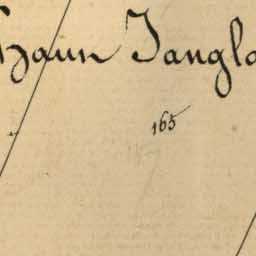 Haun Jangl
165